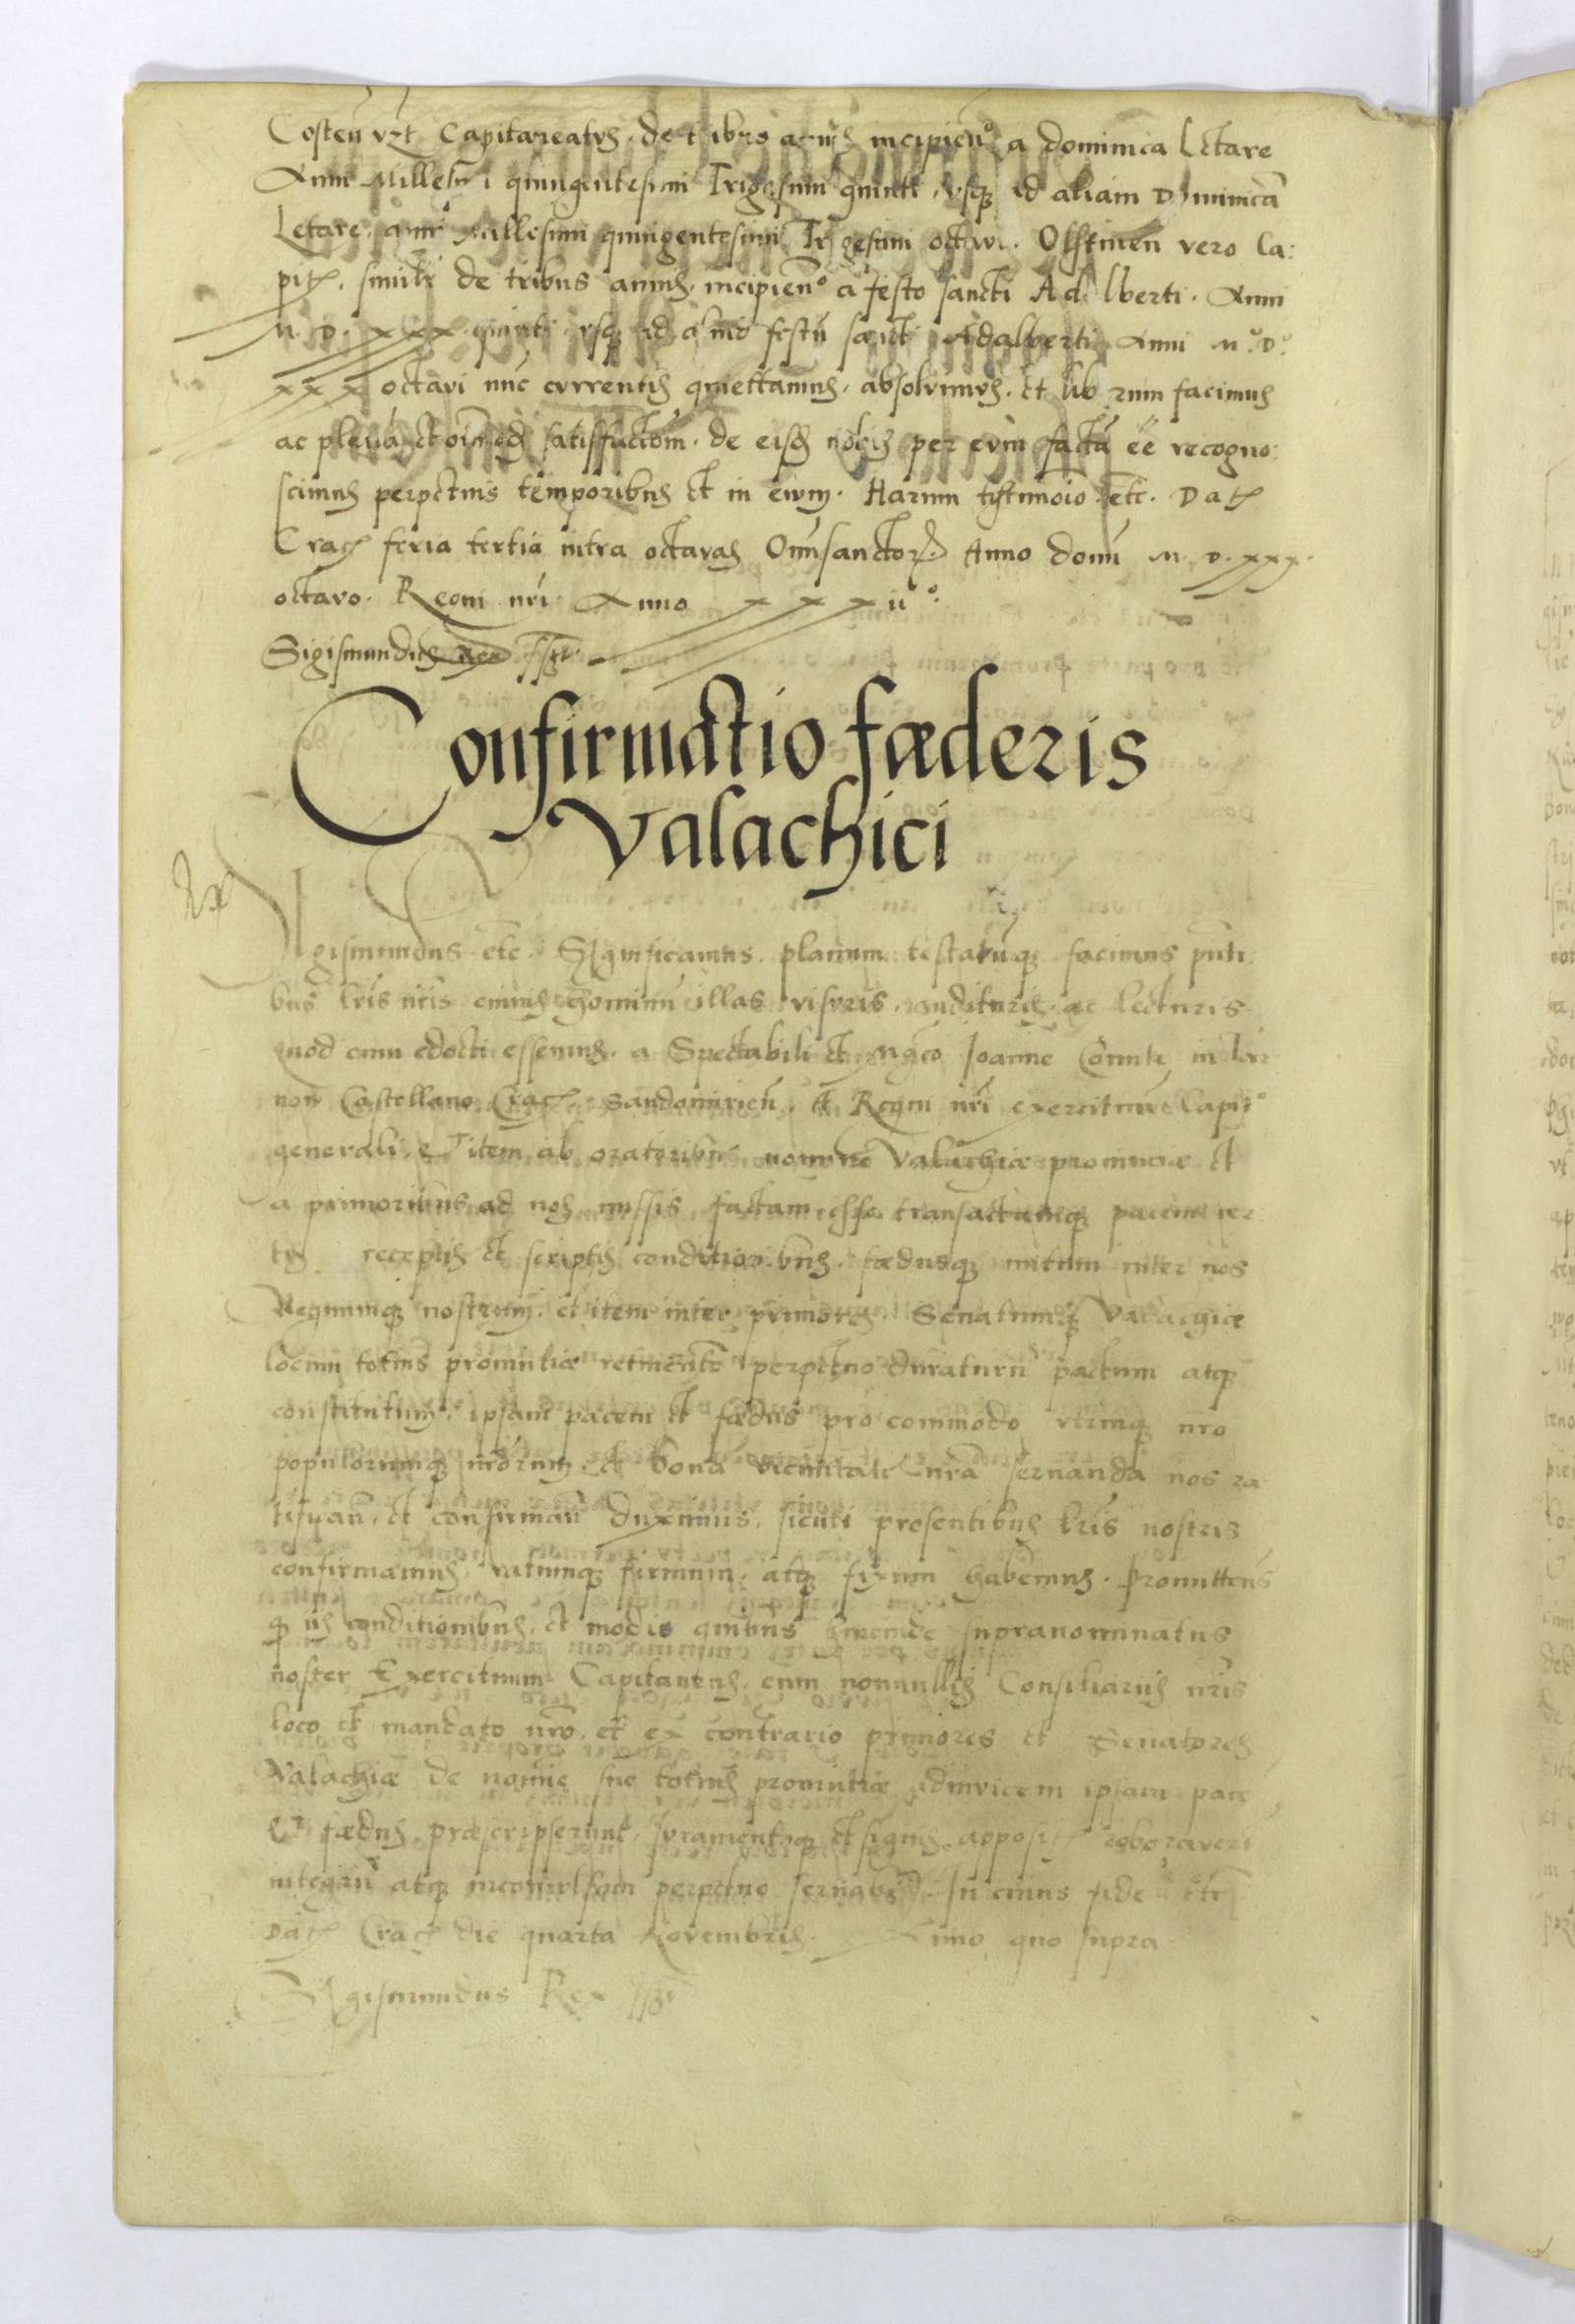 Costeñ vzt Capitaneatus. de tribus annis incipieñ° a dominica Letare
Anni Millesimi quingentesimi Trigesimi quinti, vsq ad aliam Dominicã
Letare anni Millesimi quingentesimi Trigesimi octavi. Olstineñ vero Ca:
pit. simili de tribus annis. incipieñ° a festo sancti Adalberti. Anni
M. D. xxx quinti vsq ad aliud festũ sancti Adalberti Anni M. D.
xxx octavi nũc currentis quiettamus. absolvimus. et liberum facimus
ac plenã et oĩmodã satisfactõm. de eisd nobis per eum factã eẽ recogno:
scimus perpetuis temporibus et in ewm. Harum testimoĩo etc. Dat
Crac feria tertia intra octavas Omsanctor. Anno domi M. D. xxx.
octavo. Regni nri Anno xxxii°.
Sigismundus Rex sst.
Confirmatio fœderis
Valachici
Sigismundus etc. Significamus. planum testatũq facimus pñti
bus lris nris omnis hominũ illas visuris. audituris. ac lecturis
quod cum edocti essemus. a Spectabili et Mgco Joanne Comite in Tar
now Castellano Crac. Sandomirieñ. et Regni nri exercituũ Capit°
generali. Et item ab oratoribus nomine Valachiæ provinciæ et
a primoribus ad nos missis factam esse transactamq pacem cer
tis receptis et scriptis conditionibus. fœdusq initum inter nos
Regnumq nostrum. et item inter primores. Senatumq Valachiæ
locum totius provintiæ retinentẽ perpetuo duraturũ pactum atq
constitutum. ipsam pacem et fœdus pro commodo utrinq nro
populorumq nrorum. et bona vicinitate nra servanda nos ra
tificañ. et confirmañ duximus. sicuti presentibus lris nostris
confirmamus. ratumq firmum. atq fixum habemus. Promittens
q iis conditionibus. et modis quibus hincinde supranominatus
noster Exercituum Capitaneus. cum nonnullis Consiliariis nris
loco et mandato nro. et ex contrario primores et Senatores
Valachiæ de nomie suo totius provintiæ adinvicem ipsam pacẽ
Et fædus præscripserunt. iuramentoq et signis apposit. roboraverũ
integrũ atq inconvulsam perpetuo servabit. In cuius fide etc
Dat Crac die quarta Novembris. Anno quo supra
Sigismundus Rex sst